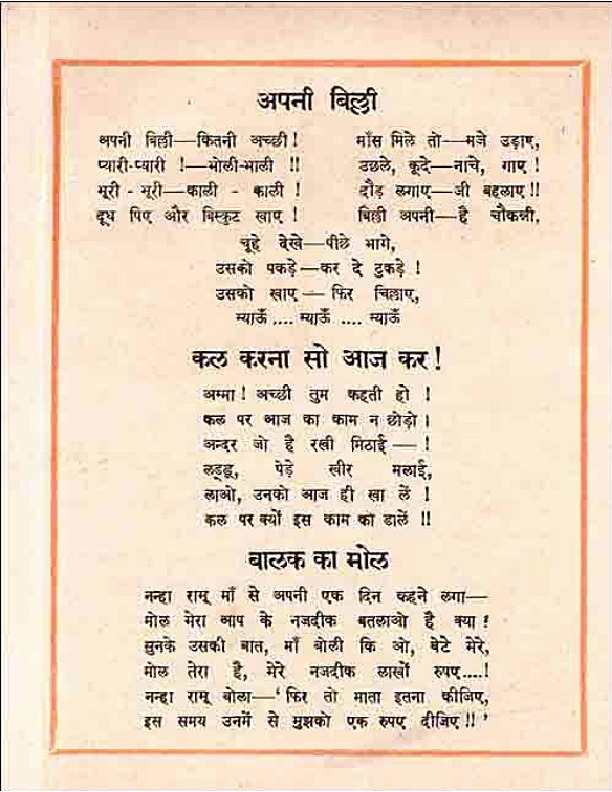 अपनी बिल्ली
अपनी बिल्ली—कितनी अच्छी !
प्यारी-प्यारी !—भोली-भाली !!
भूरी - भूरी—काली - काली !
दूध पिए और बिस्कुट खाए !
माँस मिले तो—मजे उड़ाए,
उछले, कूदे—नाचे, गाए !
दौड़ लगाए—जी बहलाए !!
बिल्ली अपनी—है चौकन्नी,
चूहे देखे—पीछे भागे,
उसको पकड़े—कर दे टुकड़े !
उसको खाए—फिर चिलाए,
म्याऊँ .... म्याऊँ .... म्याऊँ
कल करना सो आज कर !
अम्मा ! अच्छी तुम कहती हो !
कल पर आज का काम न छोड़ो ।
अन्दर जो है रखी मिठाई— !
लड्डू, पेड़े खीर मलाई,
लाओ, उनको आज ही खा लें !
कल पर क्यों इस काम को टालें !!
बालक का मोल
नन्हा रामू माँ से अपनी एक दिन कहने लगा—
मोल मेरा आप के नजदीक बतलाओ है क्या ?
सुनके उसकी बात, माँ बोली कि ओ, बेटे मेरे,
मोल तेरा है, मेरे नजदीक लाखों रुपए....!
नन्हा रामू बोला—' फिर तो माता इतना कीजिए,
इस समय उनमें से मुझको एक रुपए दीजिए !! '